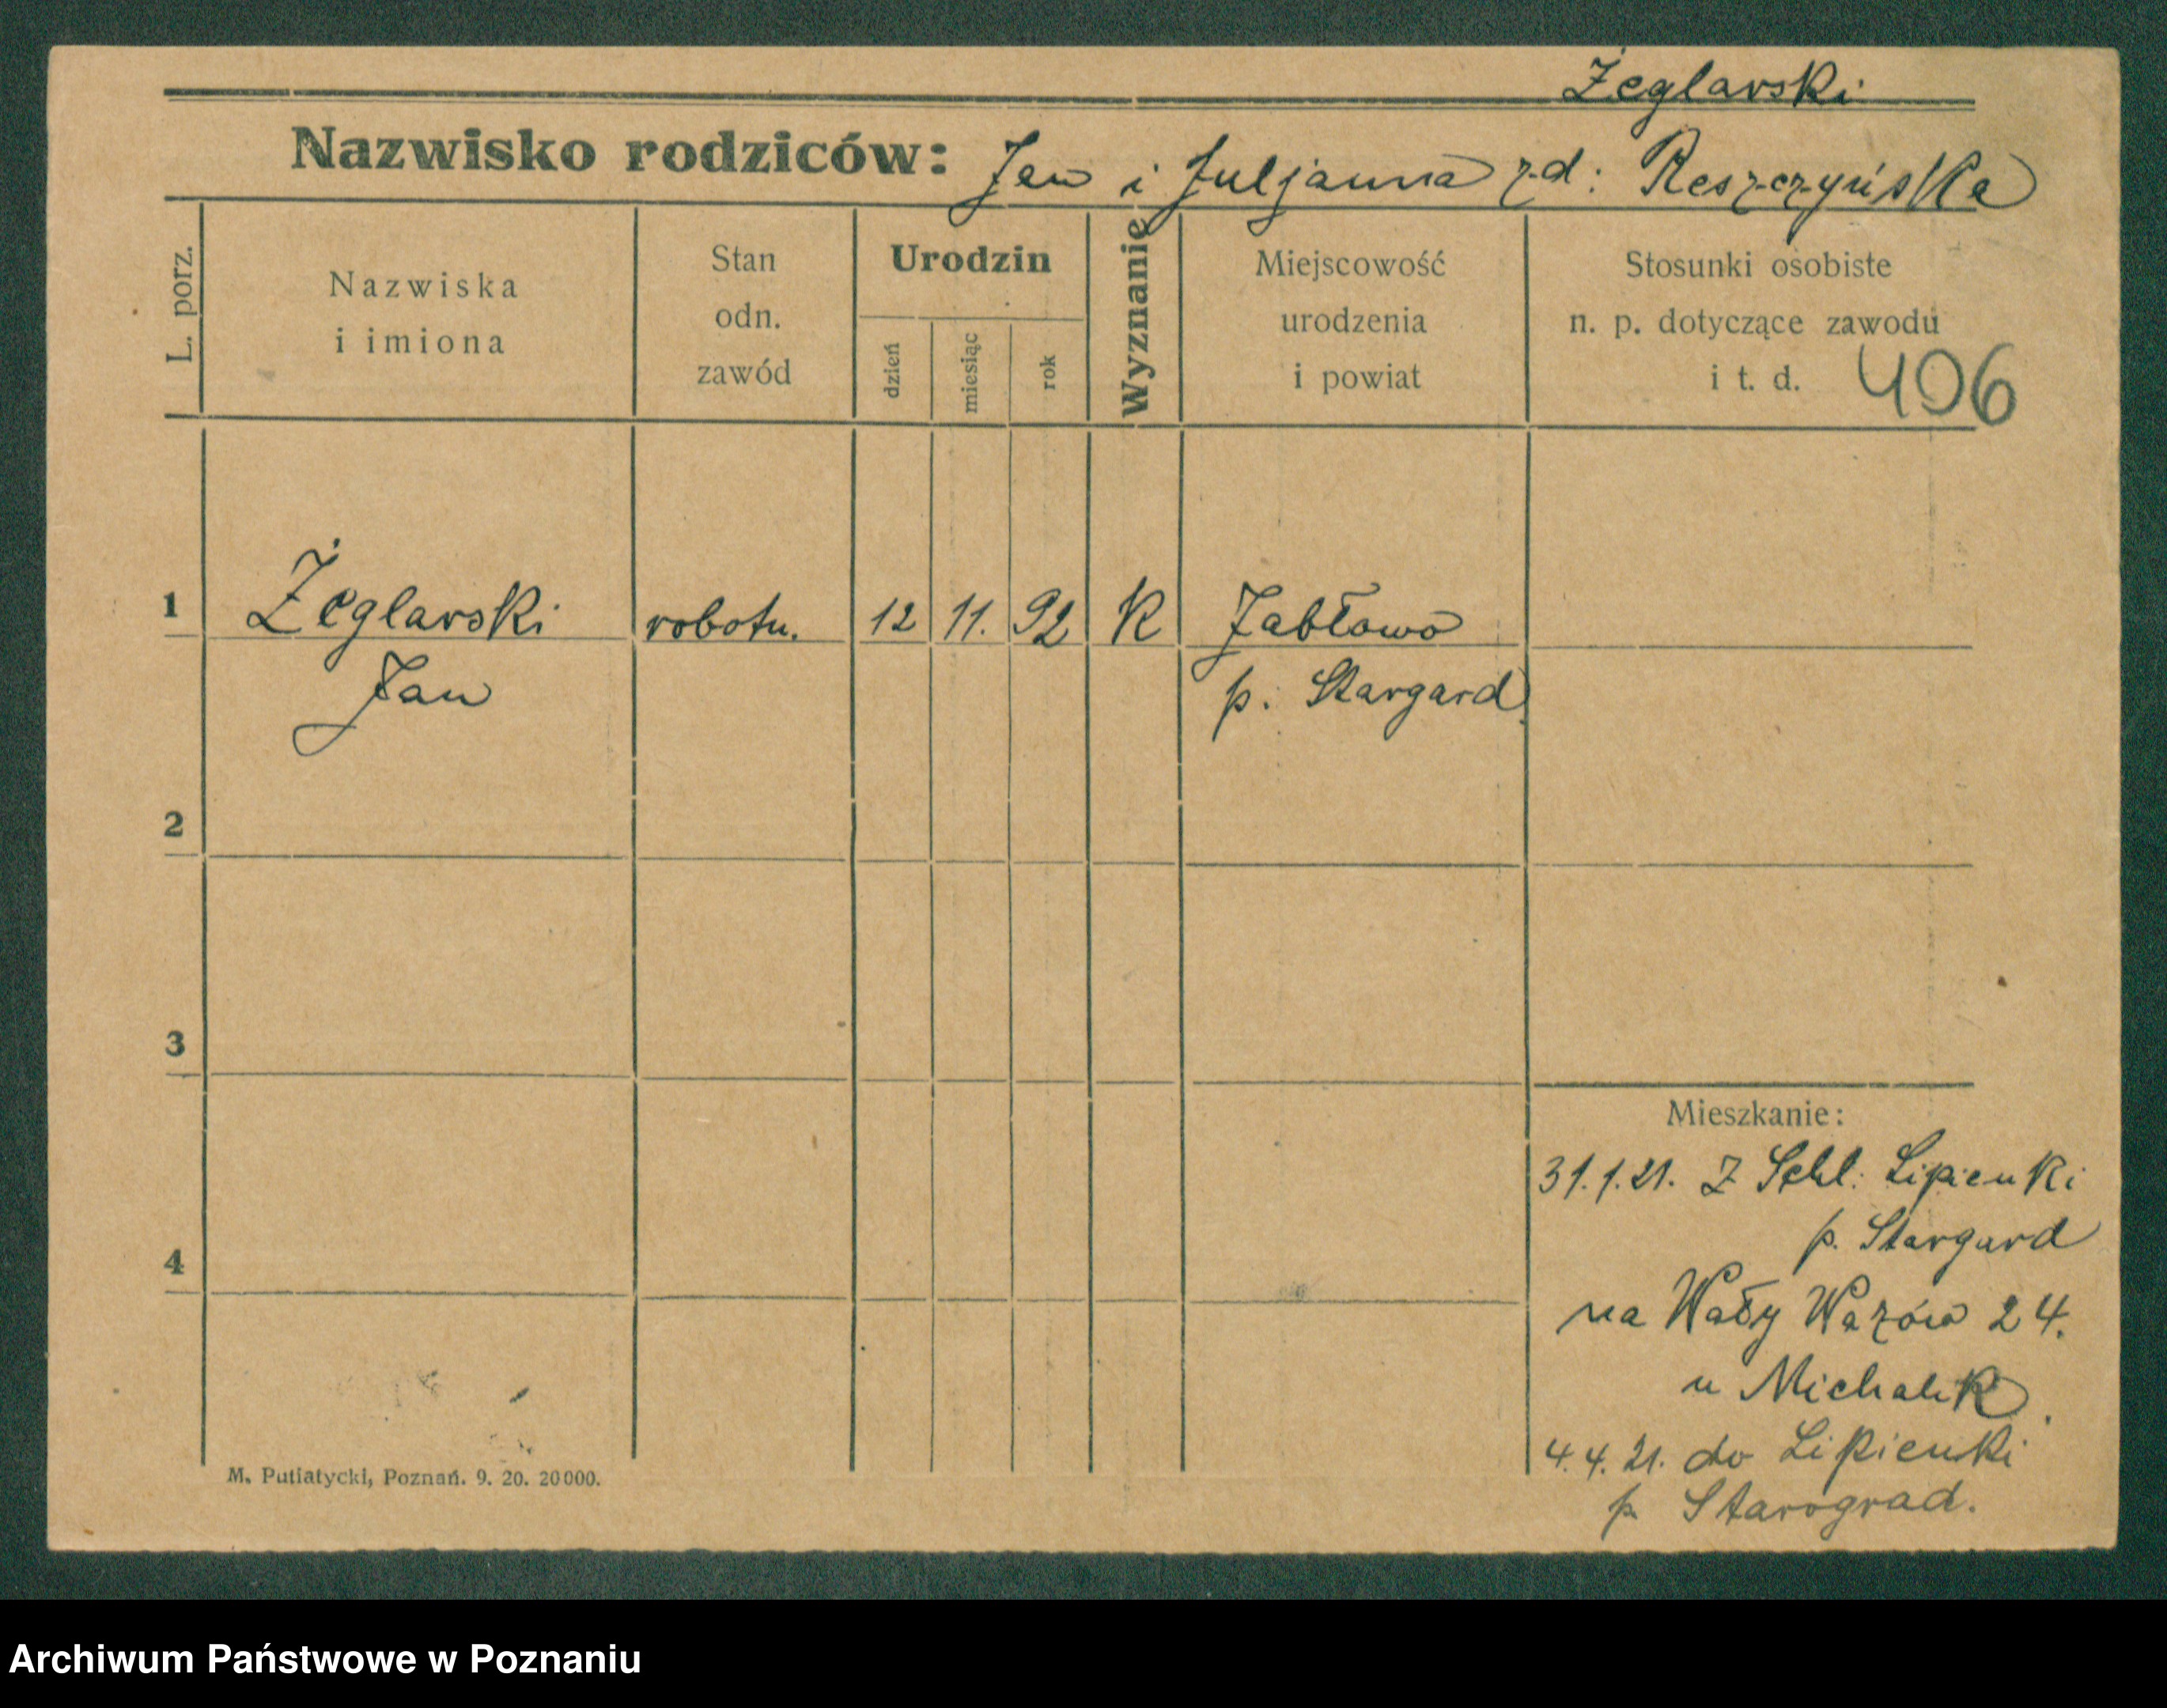 Żeglarski
Nazwisko rodziców: Jan i Juljanna z.d: Reszczyńska
L. porz.
Nazwiska
i imiona
Stan
odn.
zawód
Urodzin
dzień
miesiąc
rok
Wyznanie
Miejscowość
urodzenia
i powiat
Stosunki osobiste
n. p. dotyczące zawodu
i t. d. 406
1 Żeglarski robotn. 12 11. 92 K Jabłowo
Jan p. Stargard
2
3
4
Mieszkanie:
31.1.21. Z Schl: Lipienki
p. Stargard
na Wały Wazów 24.
u Michalik
4.4.21. do Lipienki
p. Starograd.
M. Putiatycki, Poznań. 9. 20. 20000.
Archiwum Państwowe w Poznaniu